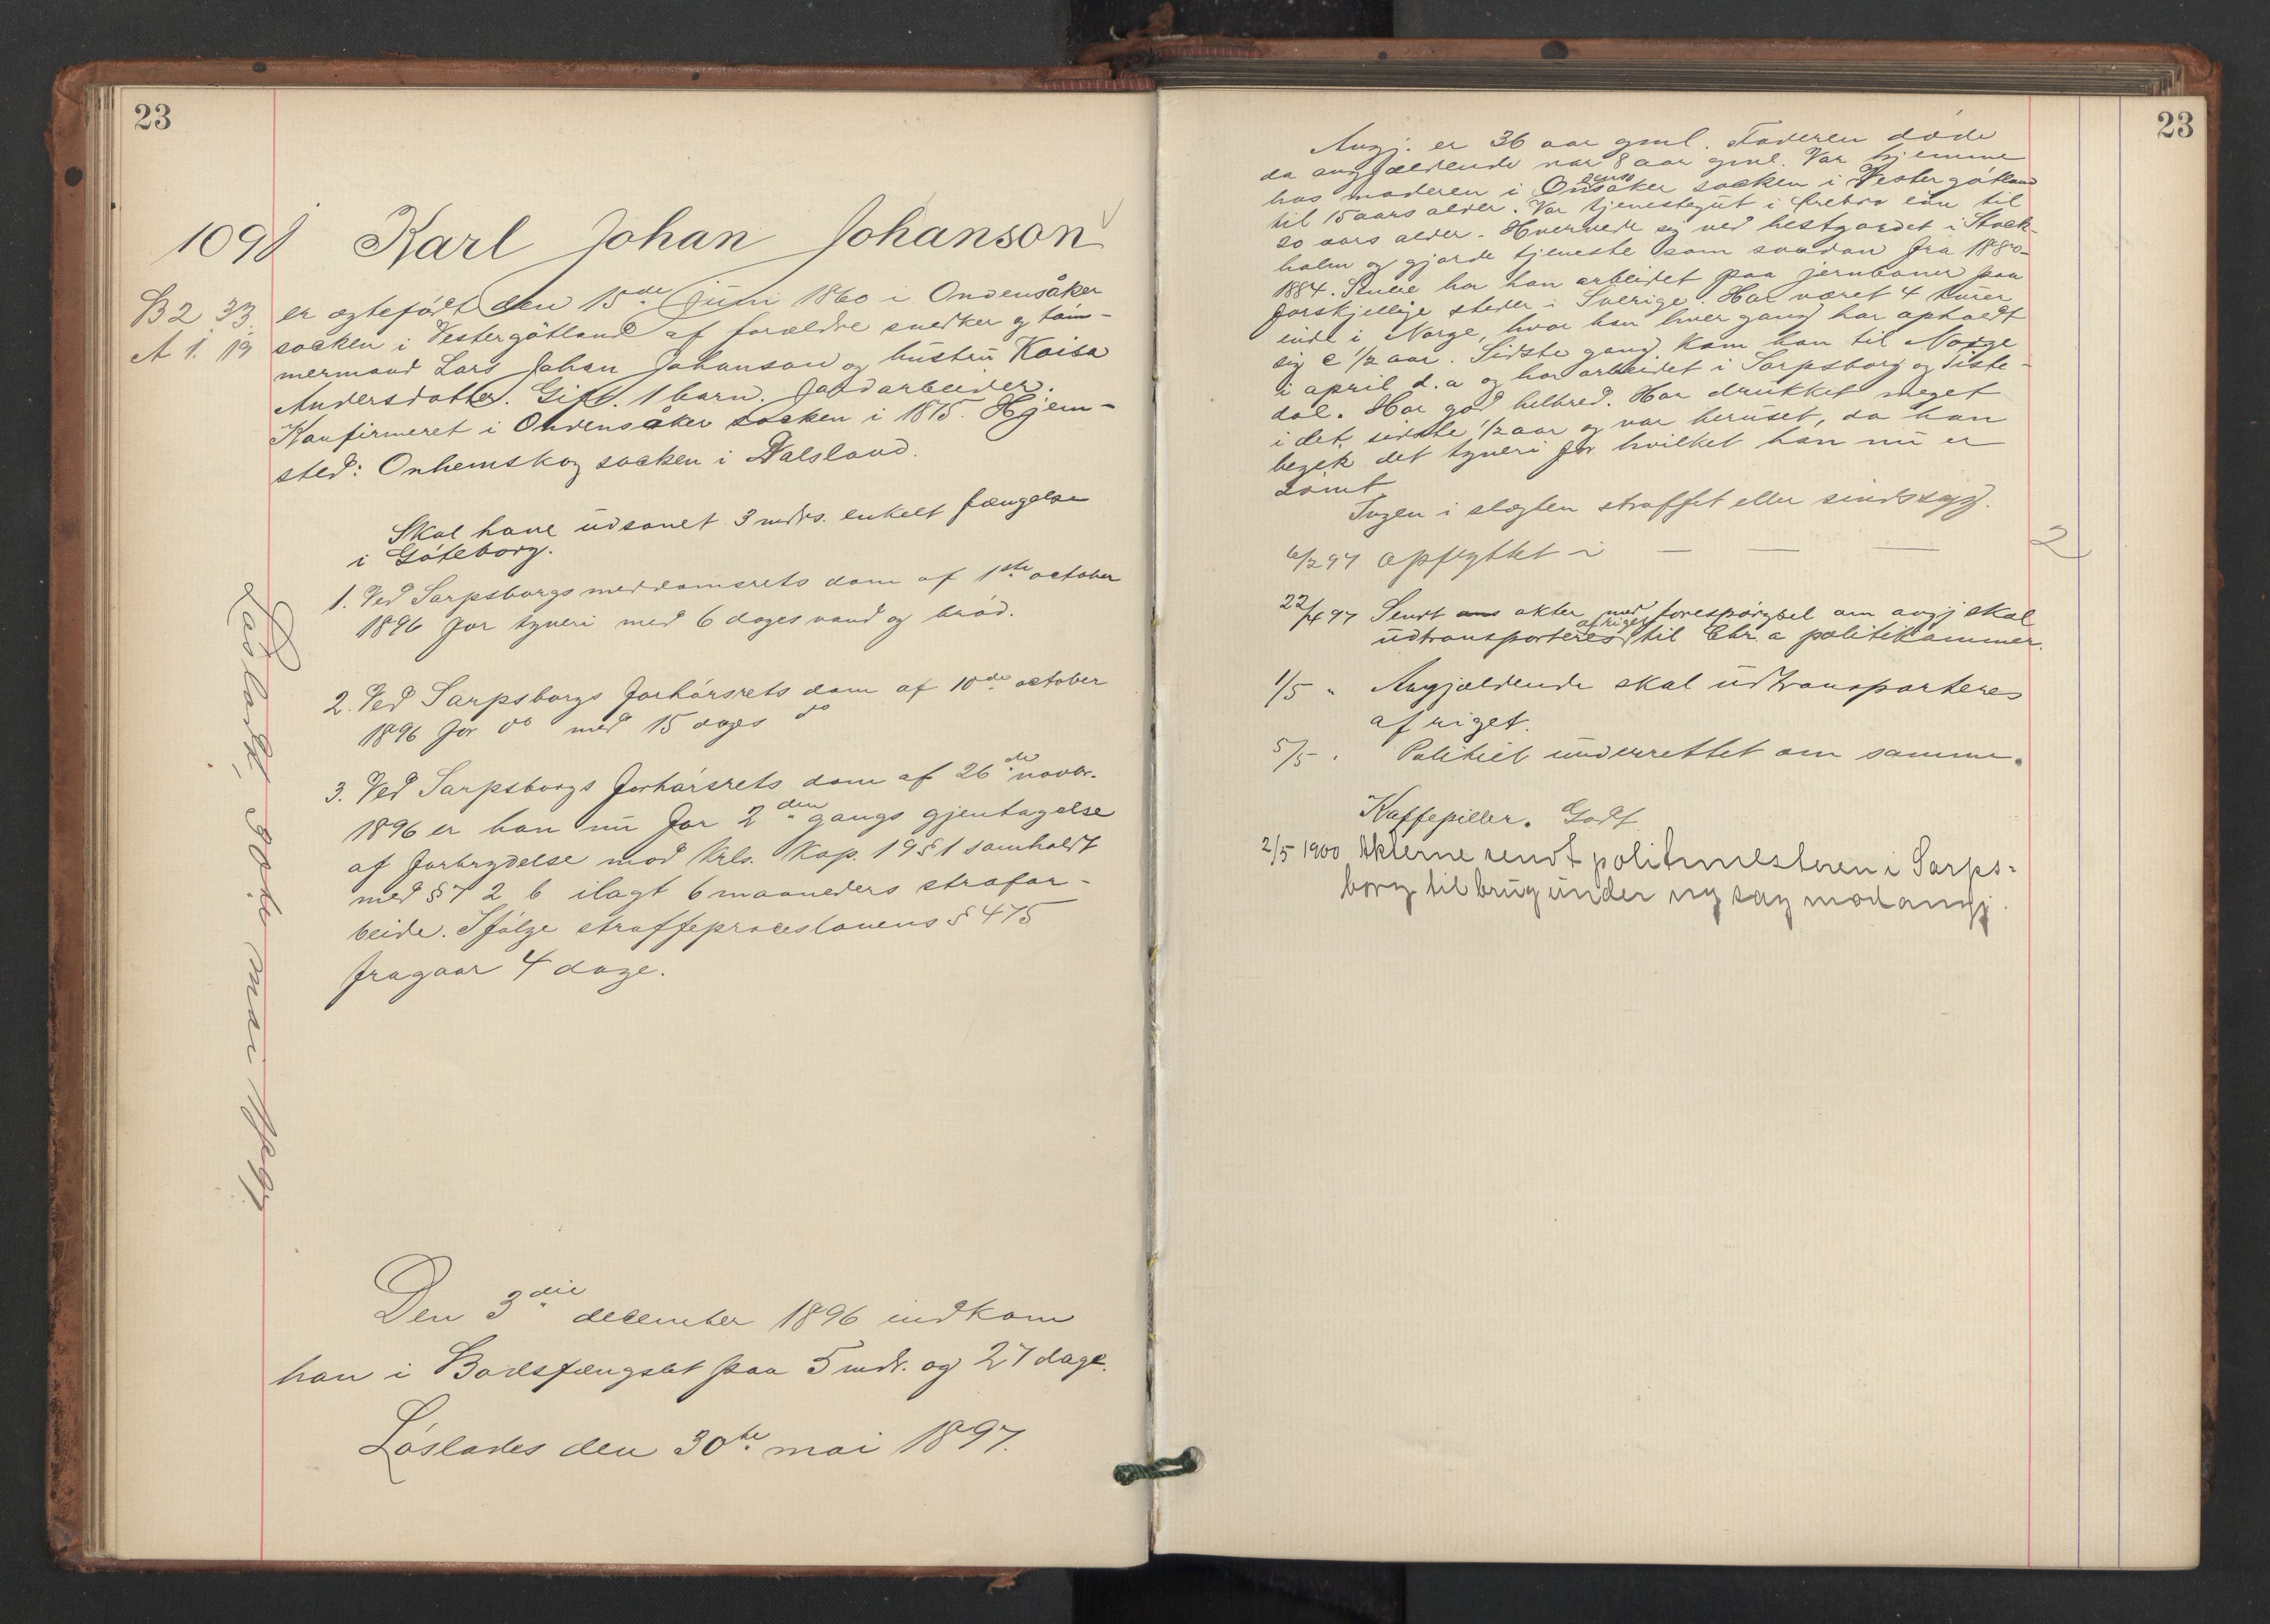 23
1091 Karl Johan Johanson
B 2. 33.
A 1. 19
er ægtefødt den 15de juni 1860 i Ondensåker
socken i Vestergötland af forældre snedker og töm-
mermand Lars Johan Johanson og hustru Kaisa
Andersdotter. Gift. 1 barn. Jordarbeider.
Konfirmeret i Ondensåker socken i 1875. Hjem-
sted: Onhemskog socken i Dalsland.
Skal have udsonet 3 mdrs. enkelt fængelse
i Göteborg.
1. Ved Sarpsborgs meddomsrets dom af 1ste october
1896 for tyveri med 6 dages vand og brød.
2. Ved Sarpsborgs forhørsrets dom af 10de october
1896 for do med 15 dages do
3. Ved Sarpsborgs forhørsrets dom af 26de novbr.
1896 er han nu for 2den gangs gjentagelse
af forbrydelse mod krls. kap. 19 § 1 samholdt
med § 7 2 b ilagt 6 maaneders strafar-
beide. Ifølge straffeproceslovens § 475
fragaar 4 dage.
Løsladt, 30te mai 1897.
Den 3die december 1896 indkom
han i Bodsfængslet paa 5 mdr. og 27 dage.
Løslades den 30te mai 1897.
23
Angj. er 36 aar gml. Faderen døde
da angjældende var 8 aar gml. Var hjemme
hos moderen i Onsåker socken i Vestergötland
til 15 aars alder. Var tjenestegut i Örebro län til
20 aars alder. Hvervede sig ved hestgardet i Stock-
holm og gjorde tjeneste som saadan fra 1880-
1884. Senere har han arbeidet paa jernbaner paa
forskjellige steder i Sverige. Har været 4 turer
inde i Norge, hvor han hver gang har opholdt
sig c 1/2 aar. Sidste gang kom han til Norge
i april d.a og har arbeidet i Sarpsborg og Tiste-
dal. Har god helbred. Har drukket meget
i det sidste 1/2 aar og var beruset, da han
begik det tyveri for hvilket han nu er
dømt.
Ingen i slægten straffet eller sindssyg.
6/2 97 opflyttet i — — — 2
22/4 97 Sendt akter med forespørgsel om angj skal
udtransporteres af riget til Chr.a politikammer.
1/5 " Angjældende skal udtransporteres
af riget.
5/5 " Politiet underrettet om samme.
Kaffepiller. Godt
2/5 1900 Akterne sendt politimesteren i Sarps-
borg til brug under ny sag mod angj.